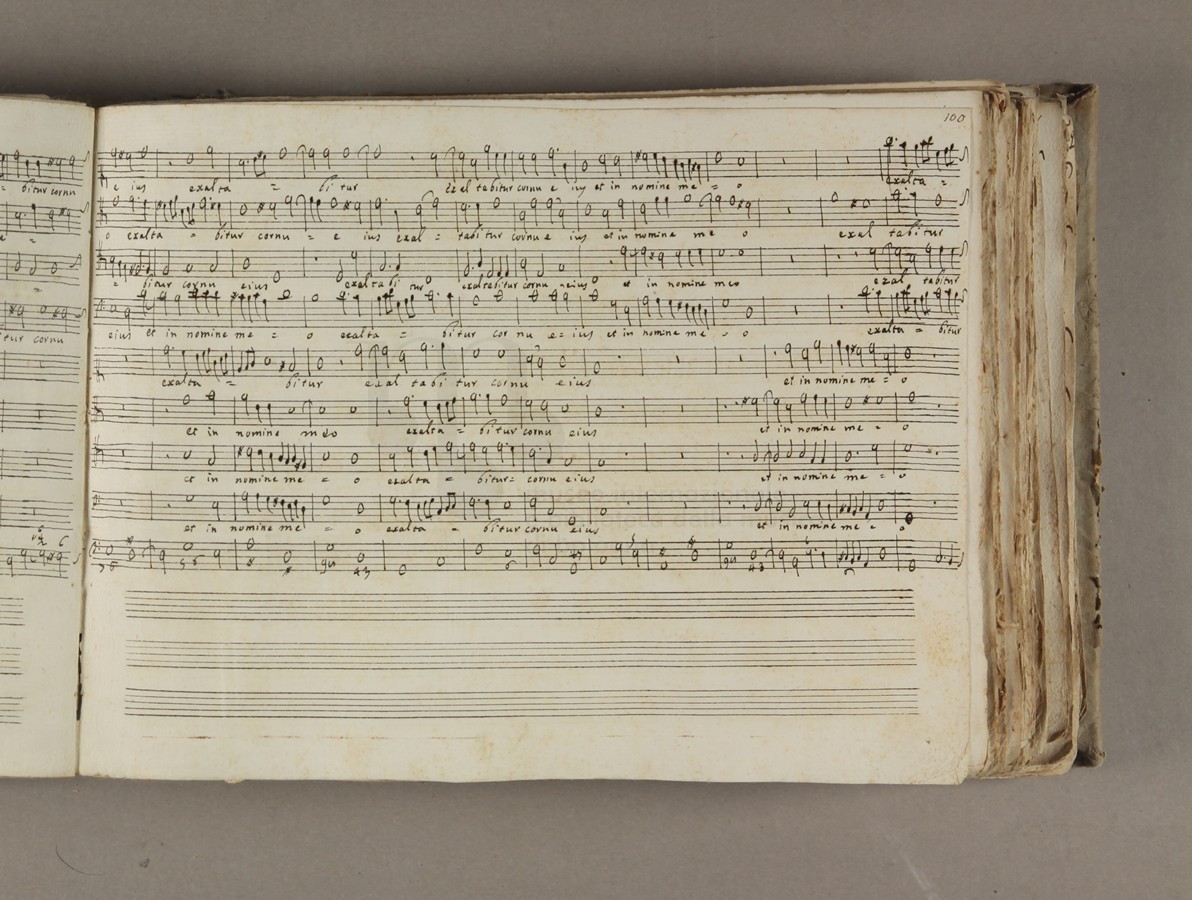 100
bitur cornu
e ius exalta = bi tur exal tabitur cornu e ius et in nomine me = o exalta =
o exalta = bitur cornu = e ius exal = tabitur cornu e ius et in nomine me o exal tabitur
= bitur cornu eius exaltabi tur exaltabitur cornu eius et in nomine meo exal tabitur
tur cornu
eius et in nomine me = o exalta = bitur cor nu e = ius et in nomine me = o exalta = bitur
exalta = bitur exal tabi tur cornu eius et in nomine me = o
et in nomine meo exalta = bitur cornu eius et in nomine me = o
et in nomine me = o exalta = bitur = cornu eius et in nomine me = o
et in nomine me = o exalta = bitur cornu eius et in nomine me = o